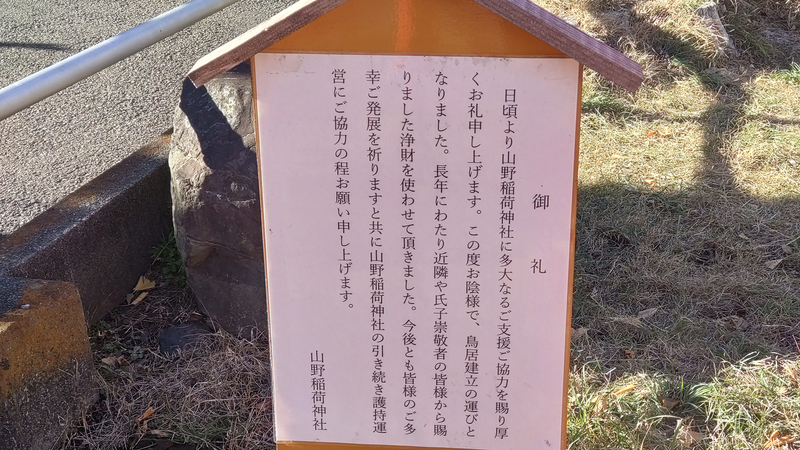 御礼
日頃より山野稲荷神社に多大なるご支援ご協力を賜り厚
くお礼申し上げます。この度お陰様で、鳥居建立の運びと
なりました。長年にわたり近隣や氏子崇敬者の皆様から賜
りました浄財を使わせて頂きました。今後とも皆様のご多
幸ご発展を祈りますと共に山野稲荷神社の引き続き護持運
営にご協力の程お願い申し上げます。
山野稲荷神社